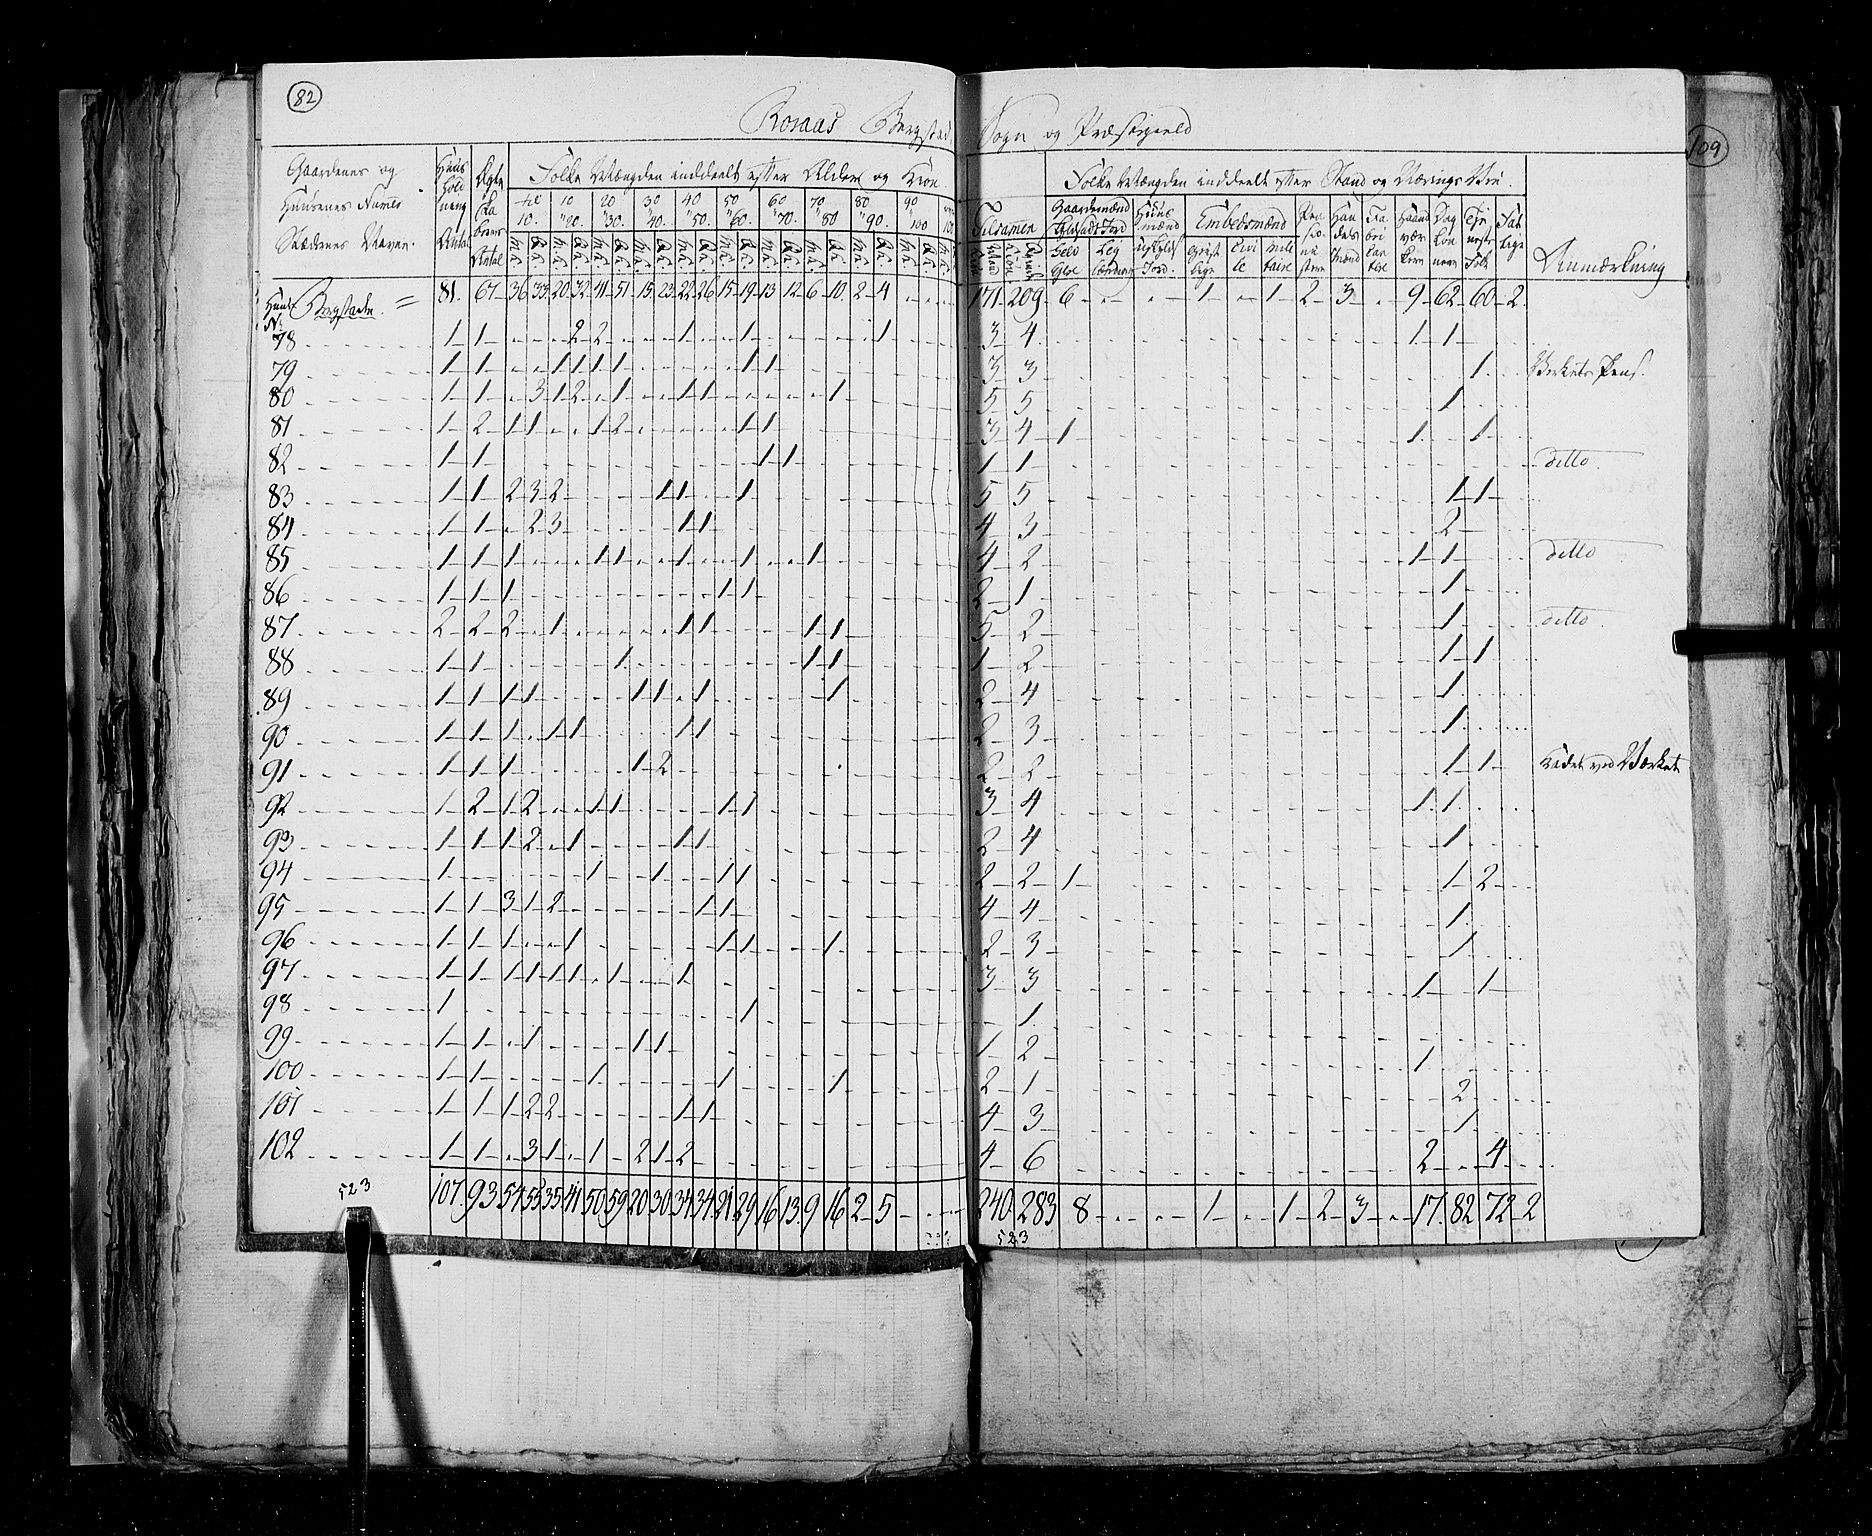 82
109
Roraas Bergstad Sogn og Præstegield
Gaardenes og Huusenes Navne Stædenes Navne.
Huus hold nings Antal
Ægte Pa Antal
Folke Mængden inddeelt efter Alder og Kiøn.
til 10. 10 " 20. 20 " 30. 30 " 40. 40 " 50. 50 " 60. 60 " 70. 70 " 80 80 " 90. 90 " 100
Tilsamen
Folke Mængden inddeelt efter Stand og Nærings Vei.
Gaardemænd Huus mænd Embedsmænd Pen sio ni ster Han dels mænd Fa bri can tere Haand vær kere Dag løn nere Tie neste Folk Fat tige
Geist lige Civi le mili taire
Anmærkning
Huus No. Bergstaden = 81. 67 36 33 20 32 41 51 15 23 22 26 15 19 13 12 6 10 2 4 171 209 6 1 1 2 3 9 62 60 2
78 1 1 2 2 1 1 1 3 4 1 1
79 1 1 1 1 1 1 1 1 3 3 1 Verkets Pens.
80 1 1 3 1 2 1 1 1 1 5 5 1
81 1 2 1 1 1 2 1 1 3 4 1 1 1
82 1 1 1 1 1 1 ditto
83 1 1 2 3 2 1 1 1 5 5 1 1
84 1 1 2 3 1 1 4 3 2
85 1 1 1 1 1 1 1 1 4 2 1 1 ditto
86 1 1 1 1 1 2 1 1
87 2 2 2 1 1 1 1 1 5 2 1 ditto
88 1 1 1 1 1 1 2 1 1
89 1 1 1 1 1 1 1 1 2 4 1
90 1 1 1 1 1 1 1 2 3 1
91 1 1 1 1 2 2 2 1 1 ved Værket
92 1 2 1 2 1 1 1 1 3 4 1 1
93 1 1 1 2 1 1 1 2 4 1
94 1 1 1 1 1 2 2 1 1 2
95 1 1 3 1 2 1 1 4 4 1
96 1 1 1 1 1 1 1 2 3 1
97 1 1 1 1 1 1 1 1 3 3 1 1
98 1 1 1
99 1 1 1 1 1 1 2 1
100 1 1 1 1 1 2 1 2
101 1 1 1 2 2 1 1 4 3 1
102 1 1 3 1 1 2 1 2 4 6 2 4
107. 93 54 53 35 41 50 59 20 30 34 34 21 29 16 13 9 16 2 5 240. 283 8 1 1 2 3 17. 82 72 2
523
523